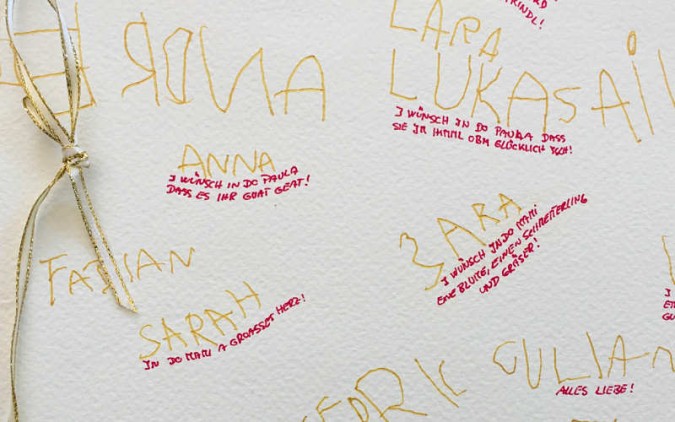 LARA
LUKAS
I WÜNSCH IN DO PAULA DASS
SIE IM HIMML OBM GLÜCKLICH ISCH!
ANNA
I WÜNSCH IN DO PAULA
DASS ES IHR GUAT GEAT!
SARA
I WÜNSCH IN DO MAMI
EINE BLUME, EINEN SCHMETTERLING
UND GRÄSER!
FABIAN
SARAH
IN DO MAMI A GROASSES HERZ!
EDRIC
JULIAN
ALLES LIEBE!